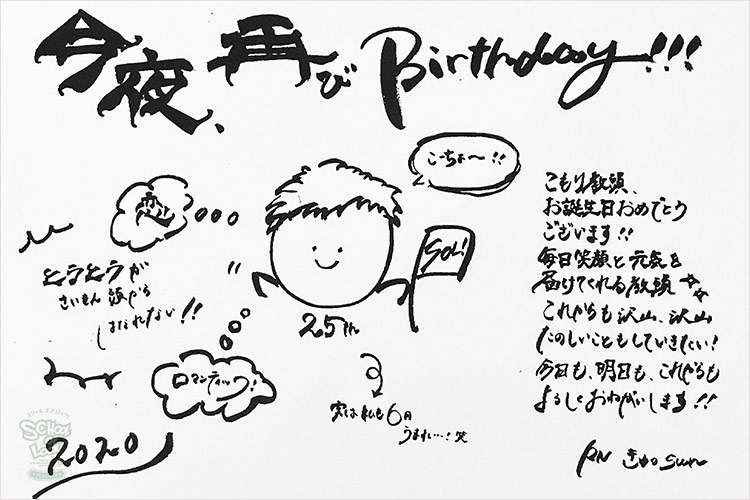 今夜、再び Birthday!!!
こーちょ〜!!
恋
SOL!
とうとうが
さいきん 頭から
はなれない!!
25th
ロマンティック!
実は私も6日
うまれ…!笑
2020
SCHOOL
こもり教頭、
お誕生日おめでとう
ございます!!
毎日笑顔と元気を
届けてくれる教頭
これからも沢山、沢山
たのしいこともしていきたい!
今日も、明日も、これからも
よろしくおねがいします!!
RN きゅsun